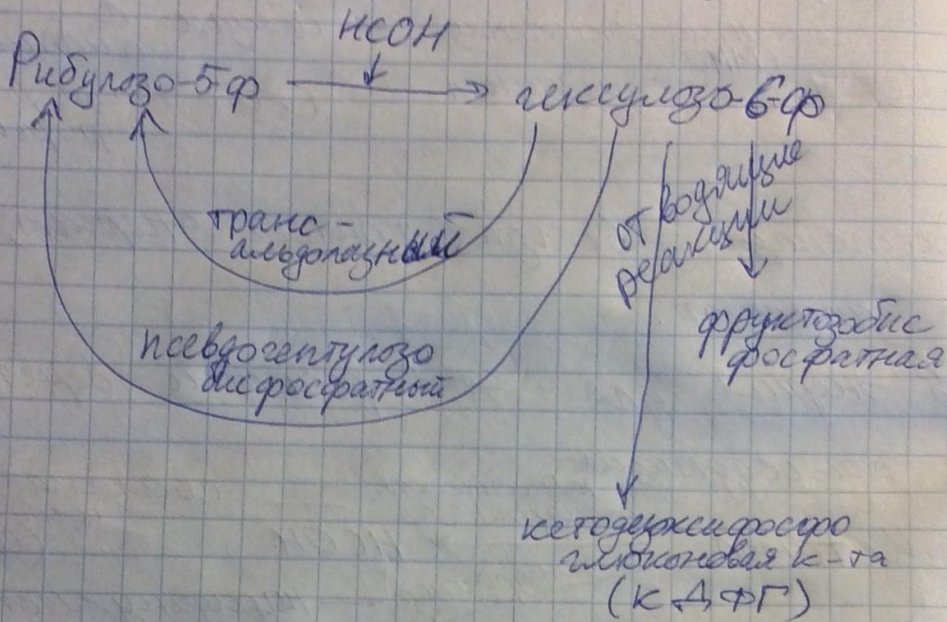 НСОН
Рибулозо-5-ф
гексулозо-6-ф
транс-
альдолазный
псевдогептулозо
бисфосфатный
отводящие
реакции
фруктозобис
фосфатная
кетодезоксифосфо
глюконовая к-та
(КДФГ)